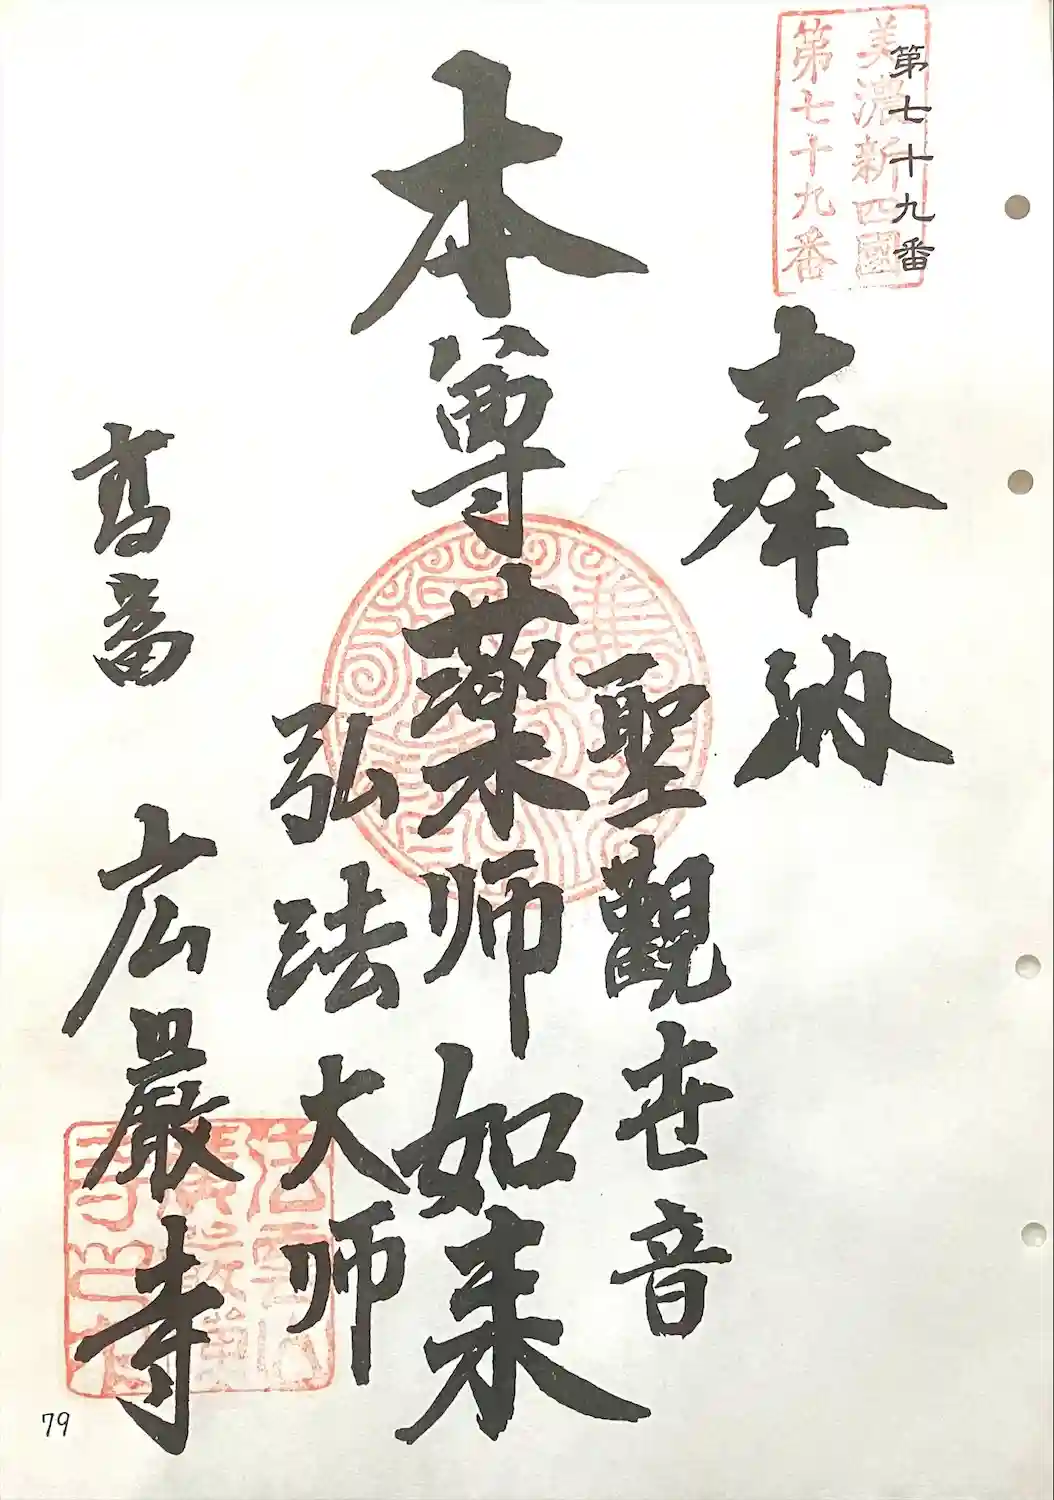 第七十九番
美濃新四國
第七十九番
奉納
聖觀世音
本尊薬师如来
弘法大师
高富
広嚴寺
79